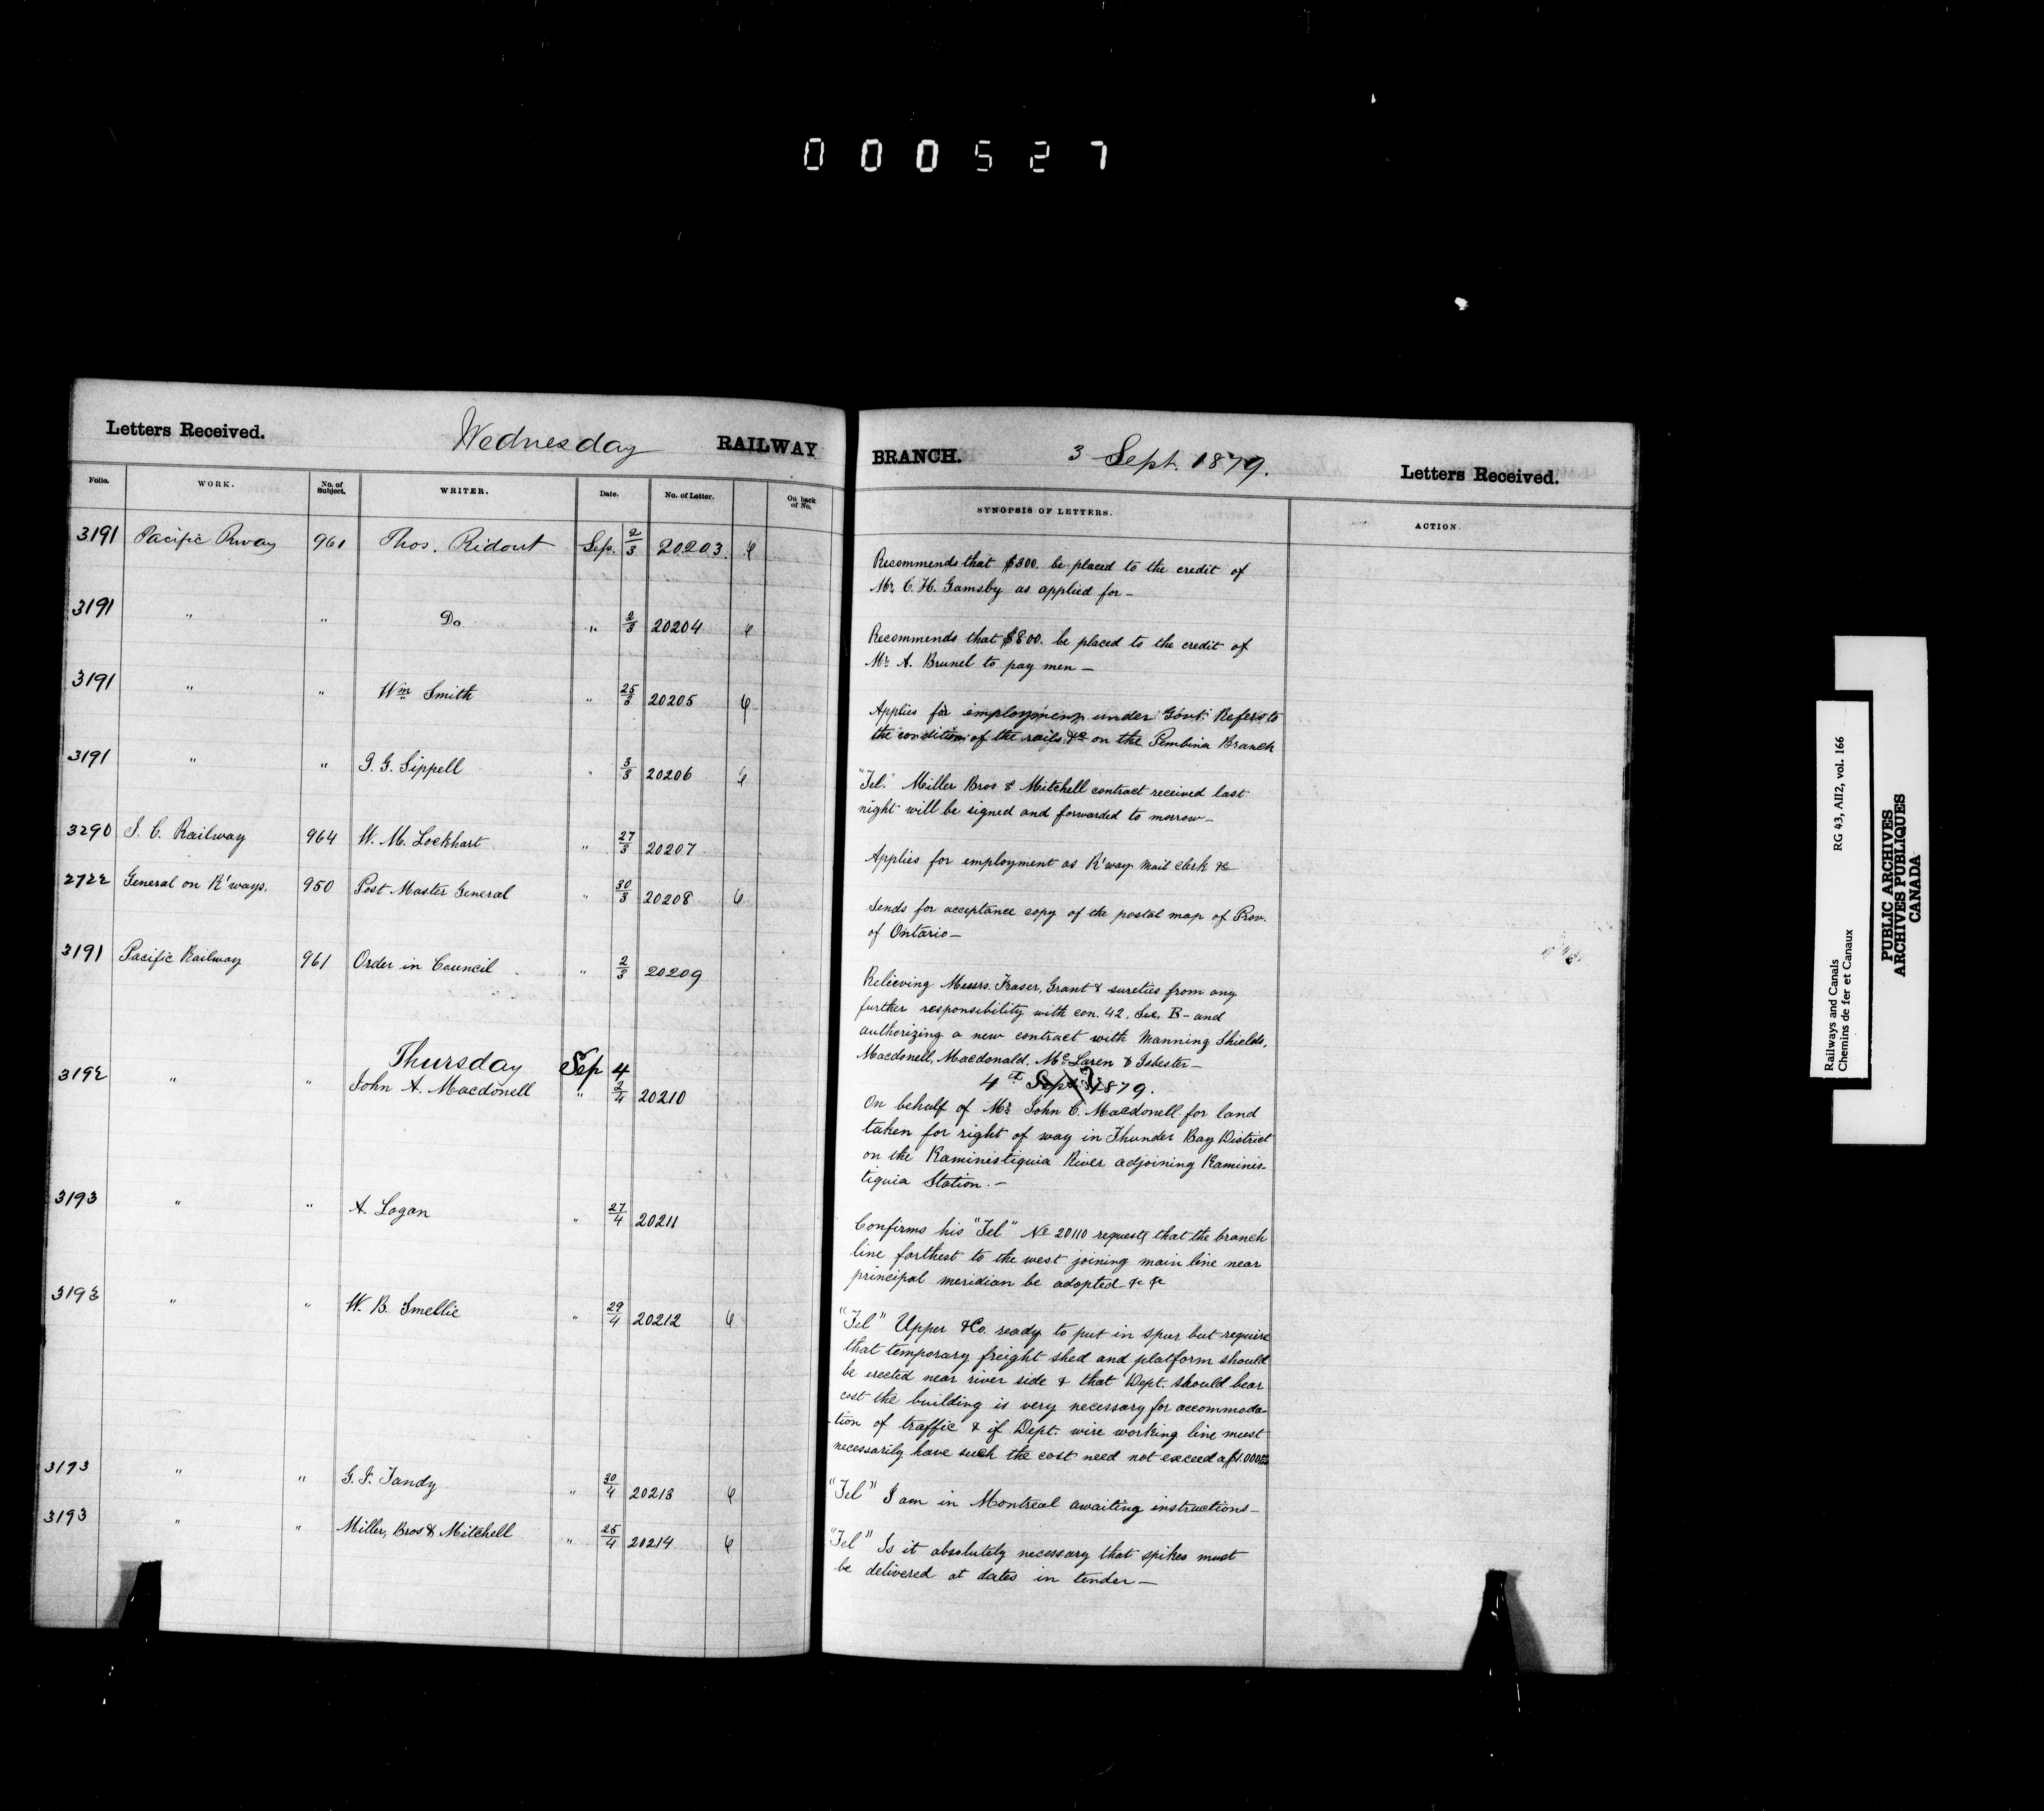 000527
Letters Received. Wednesday RAILWAY
Folio. WORK. No. of Subject. WRITER. Date. No. of Letter. On back of No.
3191 Pacific Rway 961 Thos. Ridout Sep. 2/3 20203.
3191 " " Do " 2/3 20204
3191 " " Wm Smith " 25/3 20205
3191 " " G. Sippell " 3/3 20206
3290 I. C. Railway 964 W. M. Lockhart " 27/3 20207
2722 General on R'ways. 950 Post Master General " 30/3 20208
3191 Pacific Railway 961 Order in Council " 2/3 20209
Thursday Sep 4
3192 " " John A. Macdonell " 2/4 20210
3193 " " A. Logan " 27/4 20211
3193 " " W. B. Smellie " 29/4 20212
3193 " " G. F. Tandy " 30/4 20213
3193 " " Miller, Bros & Mitchell " 25/4 20214
BRANCH. 3 Sept. 1879. Letters Received.
SYNOPSIS OF LETTERS. ACTION.
Recommends that $300. be placed to the credit of
Mr. C. H. Gamsby as applied for —
Recommends that $800. be placed to the credit of
Mr. A. Brunel to pay men —
Applies for employment under Govt. Refers to
the condition of the rails &c on the Pembina Branch
"Tel." Miller Bros & Mitchell contract received last
night will be signed and forwarded to morrow —
Applies for employment as R'way Mail Clerk &c
Sends for acceptance copy of the postal map of Prov.
of Ontario —
Relieving Messrs. Fraser, Grant & sureties from any
further responsibility with con. 42. Sec. B — and
authorizing a new contract with Manning Shields,
Macdonell, Macdonald. McLaren & Isbester —
4th Sept. 1879.
On behalf of Mr. John C. Macdonell for land
taken for right of way in Thunder Bay District
on the Kaministiquia River adjoining Kaminis-
tiquia Station. —
Confirms his "Tel" No 20110 requests that the branch
line farthest to the west joining main line near
principal meridian be adopted &c &c
"Tel" Upper & Co. ready to put in spur but require
that temporary freight shed and platform should
be erected near river side & that Dept. should bear
cost the building is very necessary for accommoda-
-tion of traffic & if Dept. wire working line must
necessarily have such the cost need not exceed $1.000
"Tel" I am in Montreal awaiting instructions —
"Tel" Is it absolutely necessary that spikes must
be delivered at dates in tender —
Railways and Canals RG 43, AII2, vol. 166
Chemins de fer et Canaux
PUBLIC ARCHIVES
ARCHIVES PUBLIQUES
CANADA